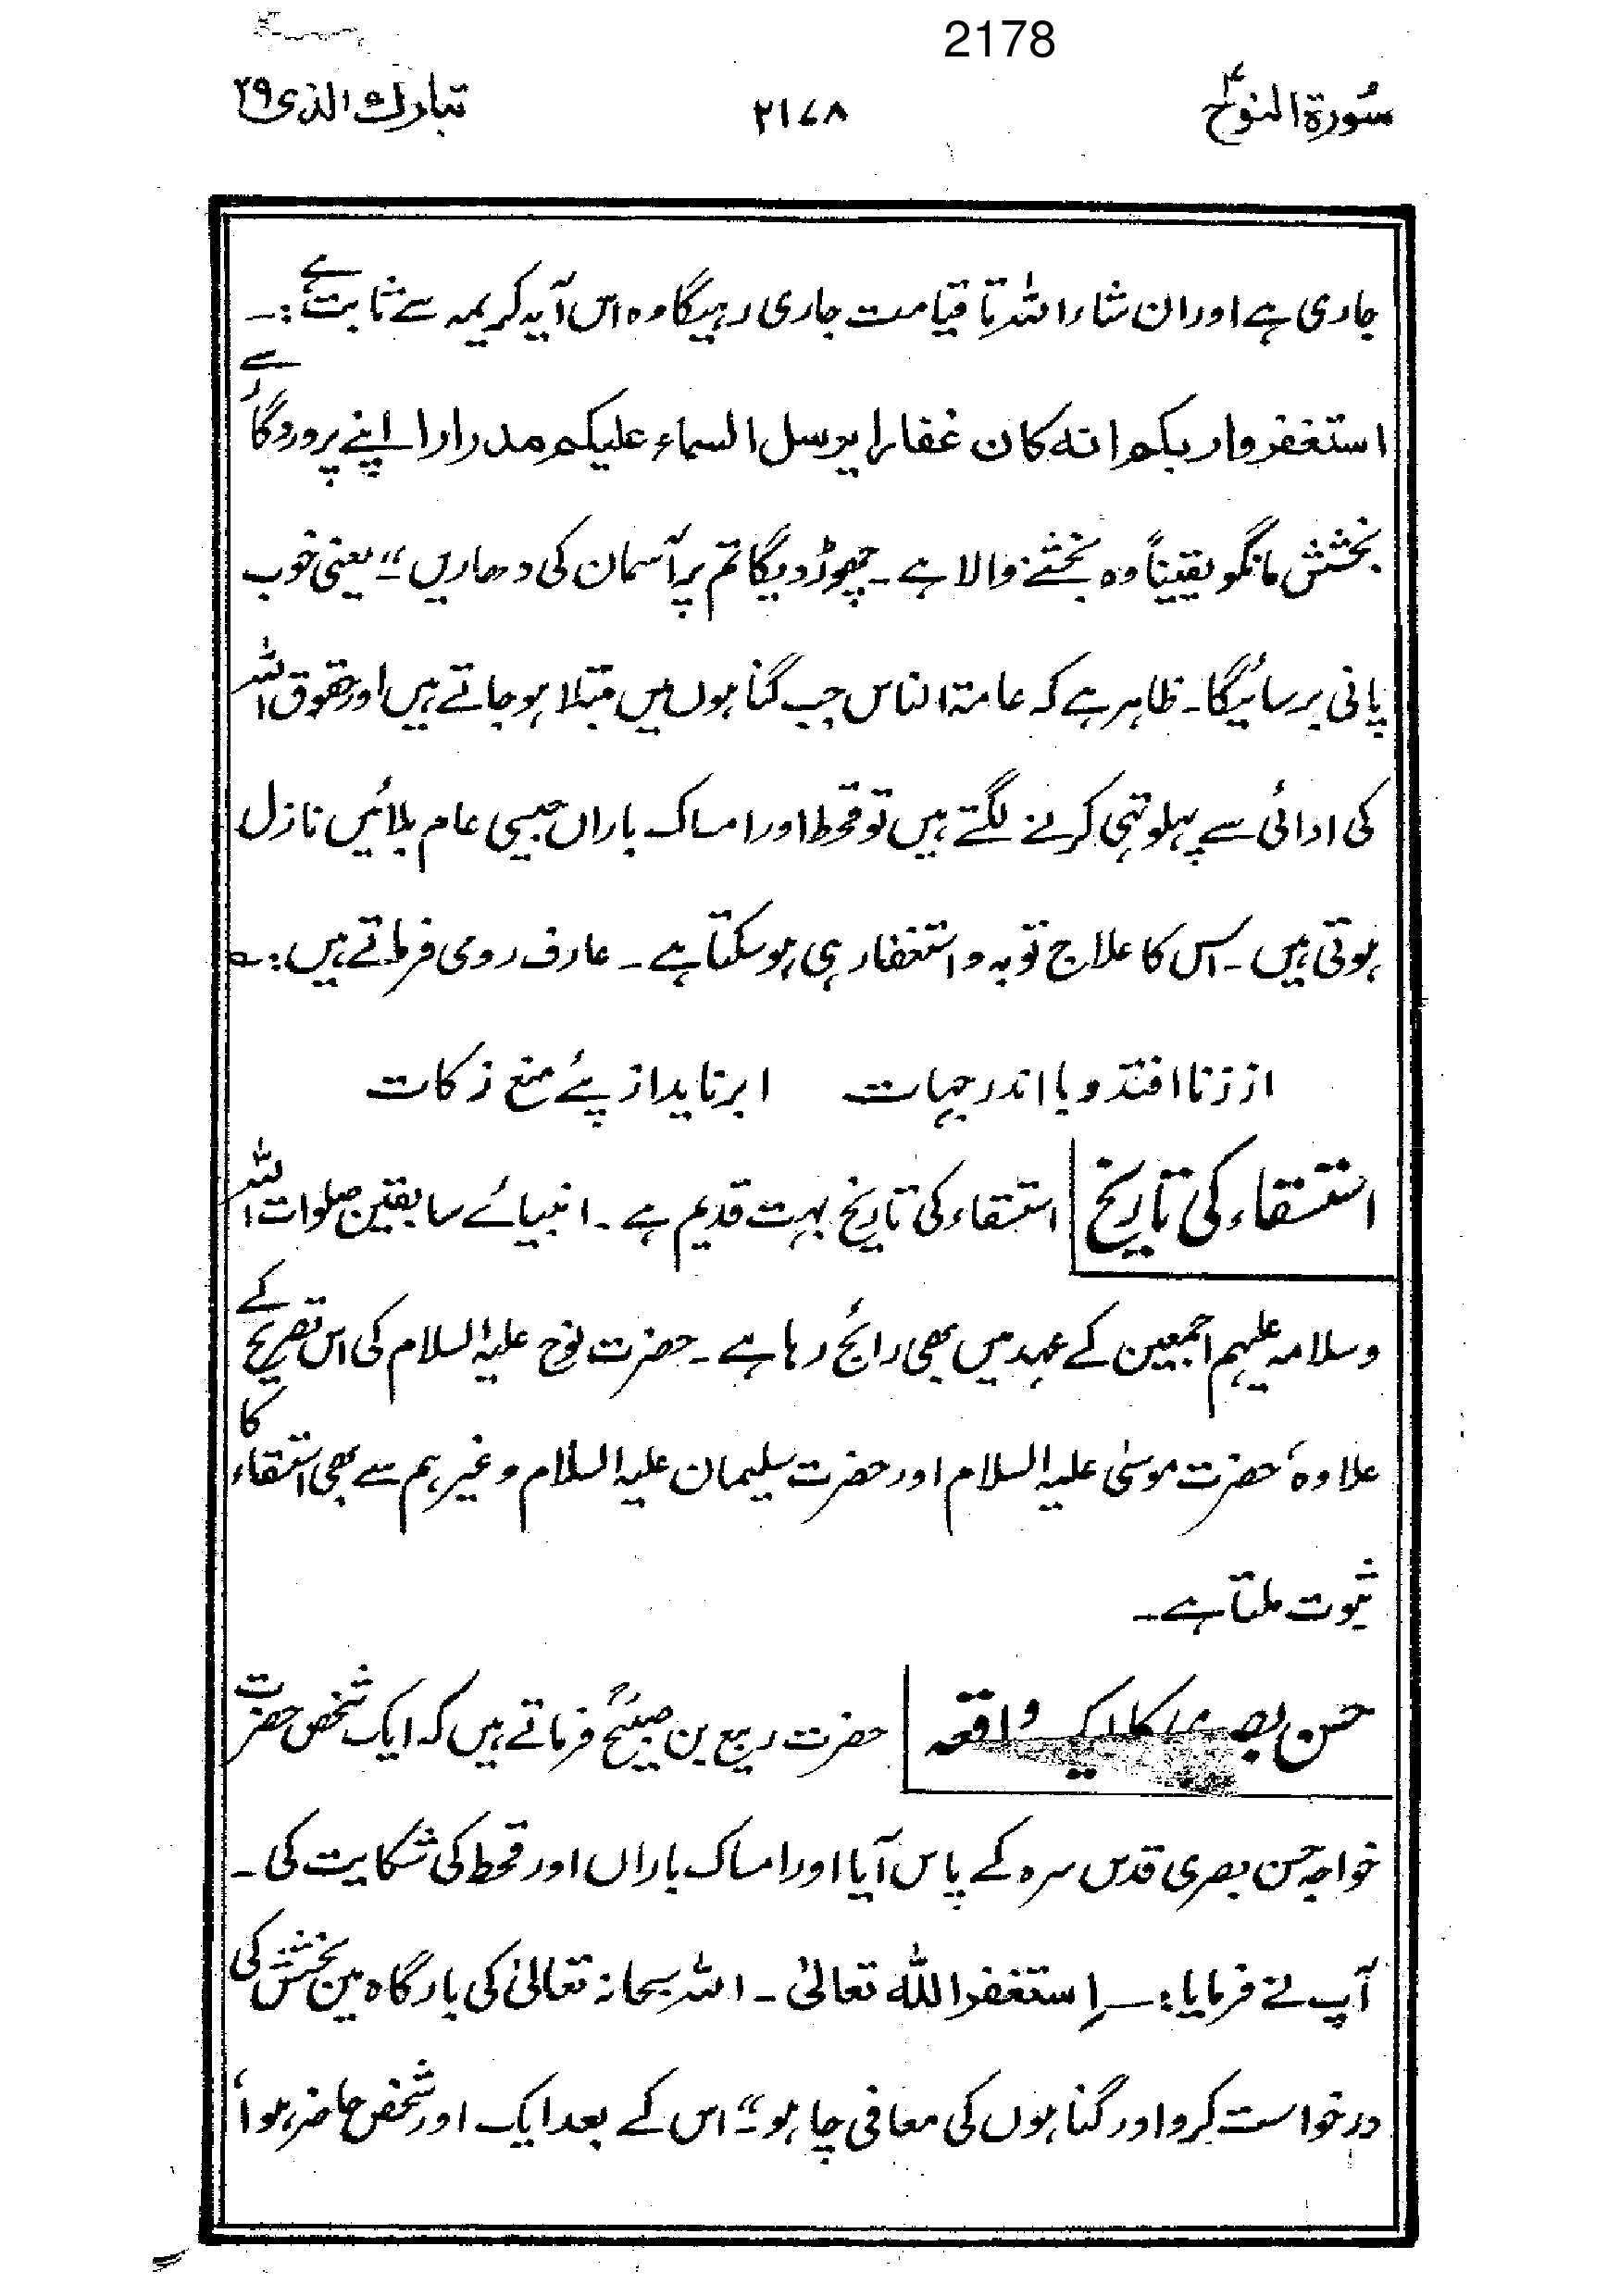 2178
سُورة النوح ۲۱۷۸ تبارک الذی ۲۹
جاری ہے اور ان شاء اللہ تا قیامت جاری رہیگا وہ اس آیہ کریمہ سے ثابت ہے :۔
استغفروا ربکم انہ کان غفارا یرسل السماء علیکم مدرارا اپنے پروردگار سے
بخشش مانگو یقیناً وہ بخشنے والا ہے ۔ چھوڑ دیگا تم پر آسمان کی دھاریں ۔‘‘ یعنی خوب
پانی برسائیگا ۔ ظاہر ہے کہ عامۃ الناس جب گناہوں میں مبتلا ہو جاتے ہیں اور حقوق اللہ
کی ادائی سے پہلو تہی کرنے لگتے ہیں تو قحط اور امساک باراں جیسی عام بلائیں نازل
ہوتی ہیں ۔ اس کا علاج توبہ و استغفار ہی ہو سکتا ہے ۔ عارف رومی فرماتے ہیں :۔
از زنا افتد و با اندر جہات ابر ناید از پئے منع زکات
استسقاء کی تاریخ استسقاء کی تاریخ بہت قدیم ہے ۔ انبیائے سابقین صلوات اللہ
وسلامہ علیہم اجمعین کے عہد میں بھی رائج رہا ہے ۔ حضرت نوح علیہ السلام کی اس تصریح کے
علاوہ ، حضرت موسیٰ علیہ السلام اور حضرت سلیمان علیہ السلام وغیرہم سے بھی استسقاء کا
ثبوت ملتا ہے ۔
حسن بصری کا ایک واقعہ حضرت ربیع بن صبیحؒ فرماتے ہیں کہ ایک شخص حضرت
خواجہ حسن بصری قدس سرہ کے پاس آیا اور امساک باراں اور قحط کی شکایت کی ۔
آپ نے فرمایا :۔ اِستغفر اللہ تعالیٰ ۔ اللہ سبحانہ تعالیٰ کی بارگاہ میں بخشش کی
درخواست کرو اور گناہوں کی معافی چاہو ۔‘‘ اس کے بعد ایک اور شخص حاضر ہوا ،